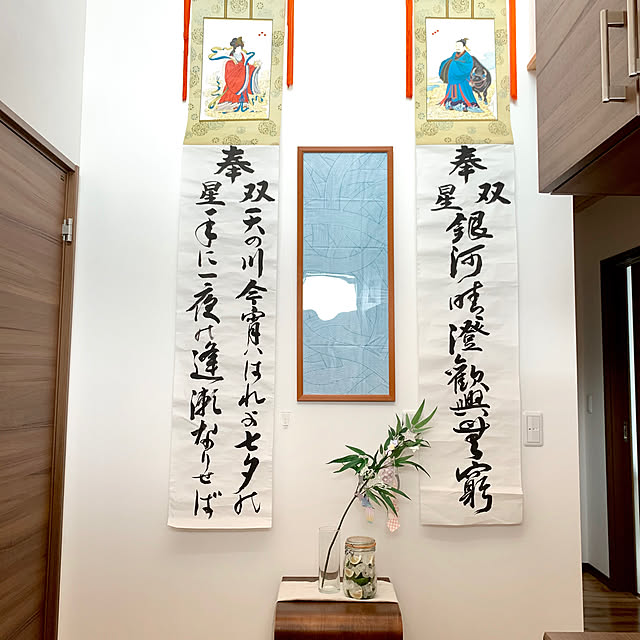 奉
双星
銀河晴澄歡興無窮
奉
双星
天の川今宵ハはれよ七夕の
年に一夜の逢瀬なりせば